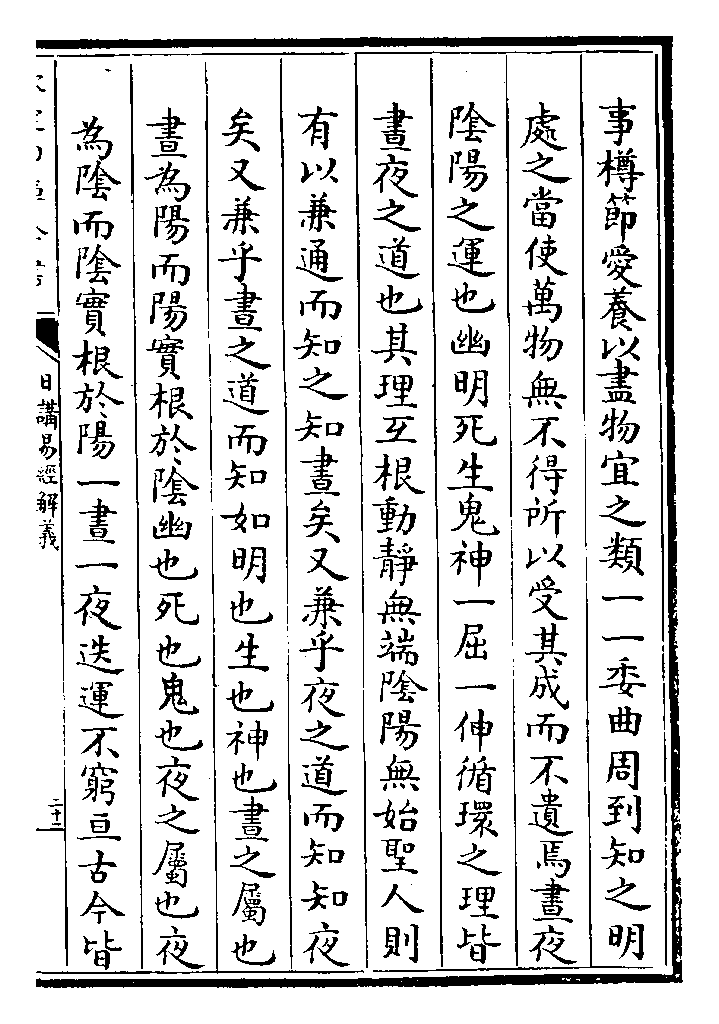 事樽節愛養以盡物宜之類一一委曲周到知之明
處之當使萬物無不得所以受其成而不遺焉晝夜
陰陽之運也幽明死生鬼神一屈一伸循環之理皆
晝夜之道也其理互根動靜無端陰陽無始聖人則
有以兼通而知之知晝矣又兼乎夜之道而知知夜
矣又兼乎晝之道而知如明也生也神也晝之屬也
晝為陽而陽實根於陰幽也死也鬼也夜之屬也夜
為陰而陰實根於陽一晝一夜迭運不窮亘古今皆
日講易經解義
二十二